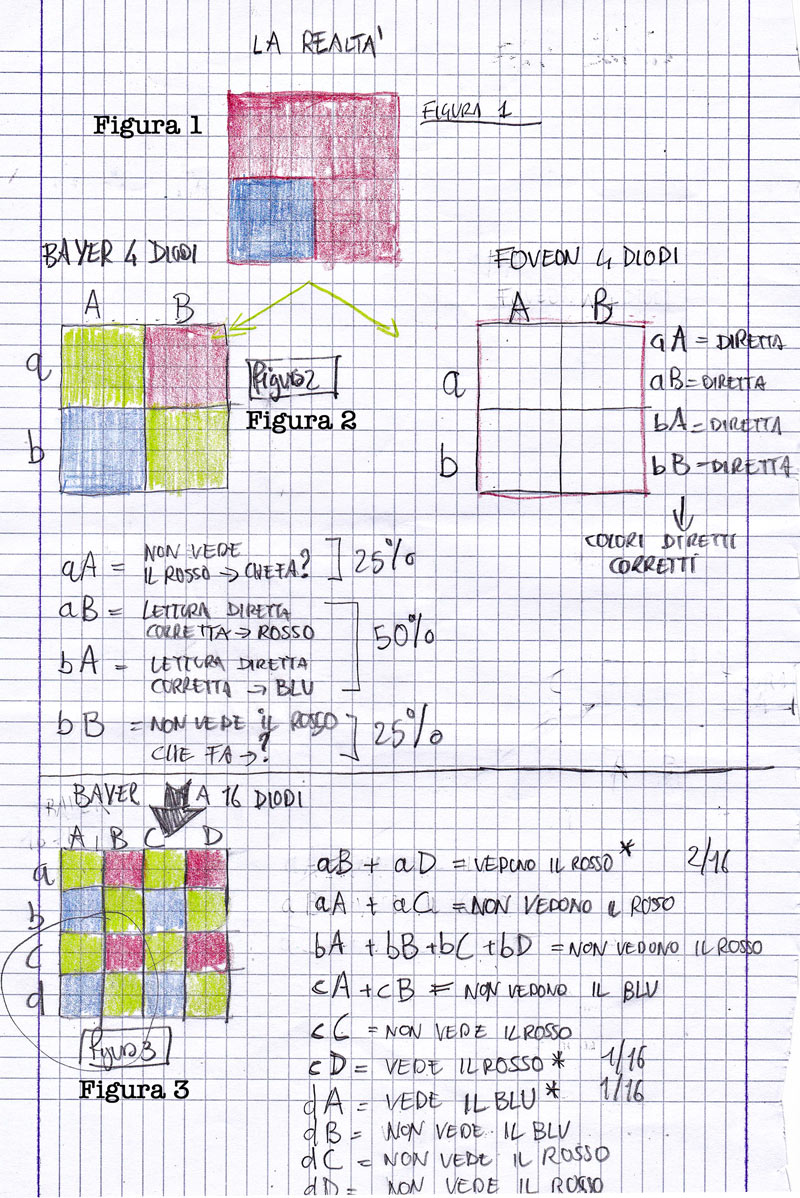 LA REALTA'
Figura 1
FIGURA 1
BAYER 4 DIODI
FOVEON 4 DIODI
A B
A B
a
b
Figura 2
Figura 2
a
b
aA = DIRETTA
aB = DIRETTA
bA = DIRETTA
bB = DIRETTA
COLORI DIRETTI
CORRETTI
aA = NON VEDE
IL ROSSO → CHE FA? 25%
aB = LETTURA DIRETTA
CORRETTA → ROSSO
50%
bA = LETTURA DIRETTA
CORRETTA → BLU
bB = NON VEDE IL ROSSO
CHE FA → ? 25%
BAYER A 16 DIODI
A B C D
a
b
c
d
Figura 3
Figura 3
aB + aD = VEDONO IL ROSSO * 2/16
aA + aC = NON VEDONO IL ROSSO
bA + bB + bC + bD = NON VEDONO IL ROSSO
cA + cB = NON VEDONO IL BLU
cC = NON VEDE IL ROSSO
cD = VEDE IL ROSSO * 1/16
dA = VEDE IL BLU * 1/16
dB = NON VEDE IL BLU
dC = NON VEDE IL ROSSO
dD = NON VEDE IL ROSSO